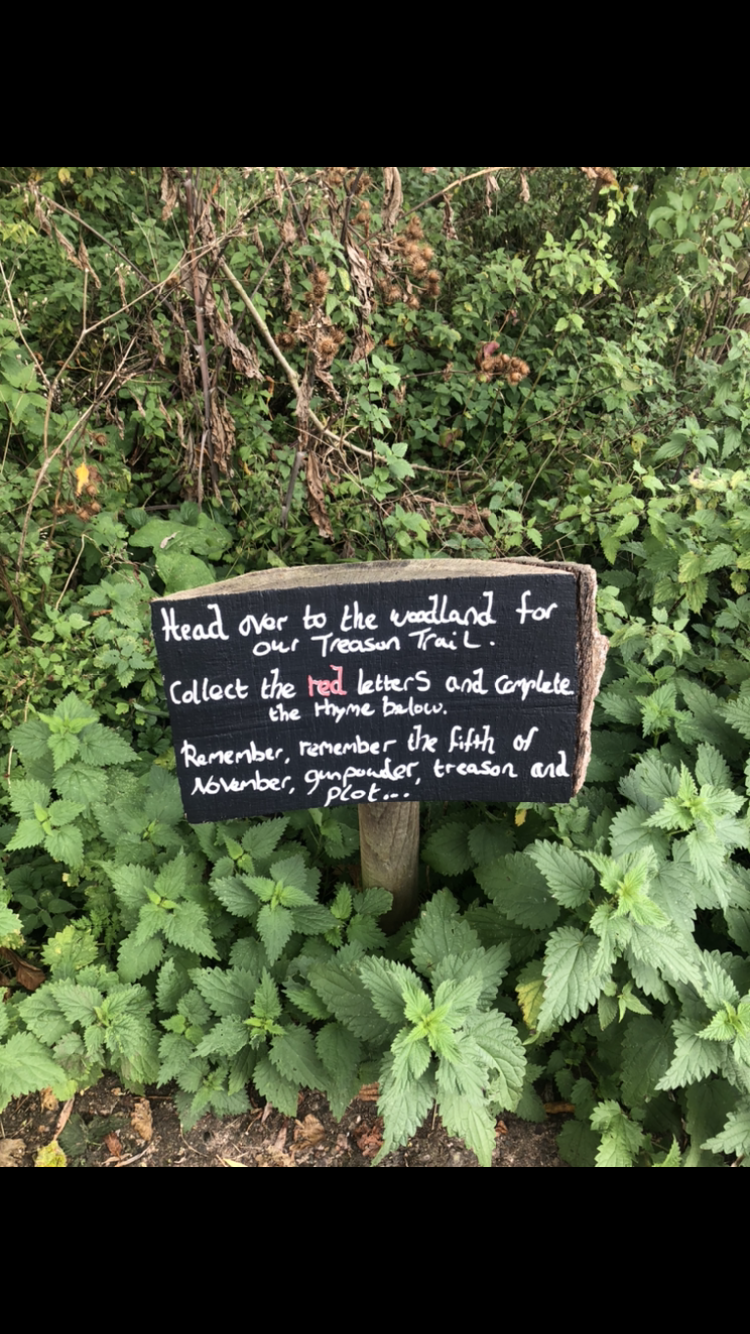 Head over to the woodland for
our Treason Trail.
Collect the red letters and complete
the rhyme below.
Remember, remember the fifth of
November, gunpowder, treason and
plot...